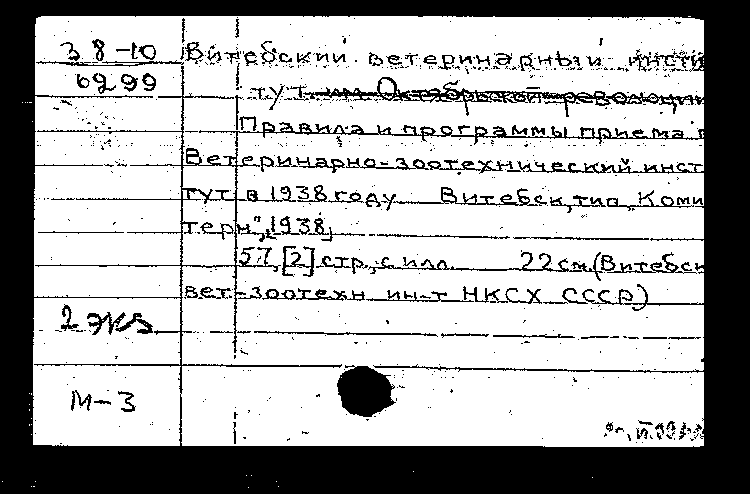 38-10
6299
Витебский ветеринарный инсти
тут им. Октябрьской революции
Правила и программы приема в
Ветеринарно-зоотехнический инст
тут в 1938 году Витебск, тип. „Коми
терн", 1938,
57, [2] стр., с илл. 22 см. (Витебск
вет-зоотехн. ин-т НКСХ СССР)
2 экз.
М-3